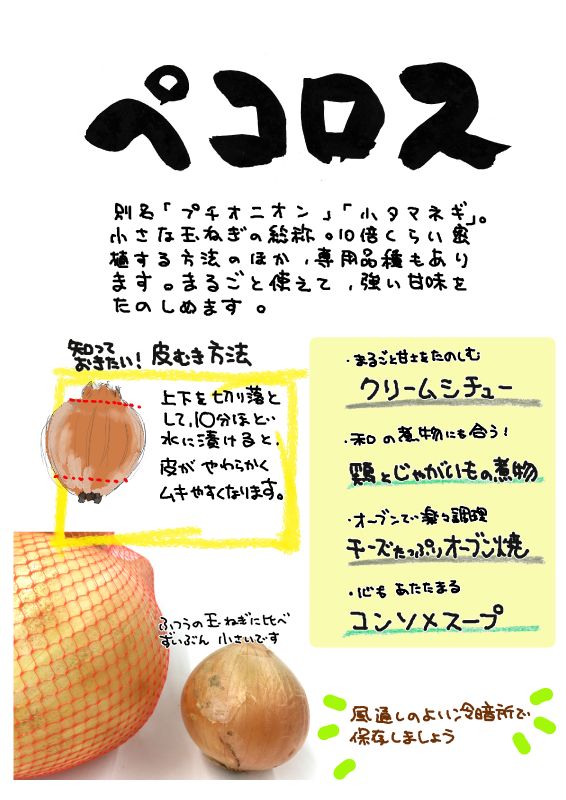 ペコロス
別名「プチオニオン」「小タマネギ」。
小さな玉ねぎの総称。10倍くらい密
植する方法のほか、専用品種もあり
ます。まるごと使えて、強い甘味を
たのしめます。
知って
おきたい！皮むき方法
上下を切り落と
して、10分ほど、
水に漬けると、
皮がやわらかく
ムキやすくなります。
・まるごと甘さをたのしむ
クリームシチュー
・和の煮物にも合う！
鶏とじゃがいもの煮物
・オーブンで楽々調理
チーズたっぷりオーブン焼
・心もあたたまる
コンソメスープ
ふつうの玉ねぎに比べ
ずいぶん小さいです
風通しのよい冷暗所で
保存しましょう